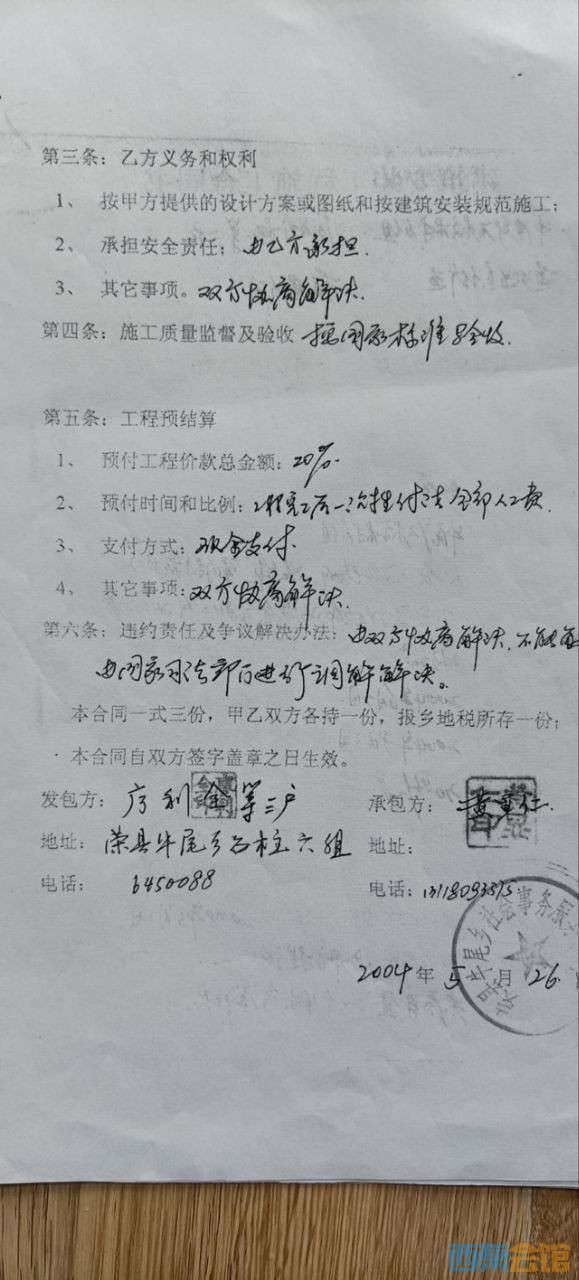 第三条：乙方义务和权利
1、 按甲方提供的设计方案或图纸和按建筑安装规范施工；
2、 承担安全责任；由乙方承担.
3、 其它事项。双方协商解决.
第四条：施工质量监督及验收 按国家标准验收.
第五条：工程预结算
1、 预付工程价款总金额：20%.
2、 预付时间和比例：工程完工后一次性付清全部人工费.
3、 支付方式：现金支付.
4、 其它事项：双方协商解决.
第六条：违约责任及争议解决办法：由双方协商解决.不能
由国家司法部门进行调解解决。
本合同一式三份，甲乙双方各持一份，报乡地税所存一份；
本合同自双方签字盖章之日生效。
发包方： 利金等三户 承包方：
地址： 荣县牛尾乡石柱六组 地址：
电话： 6450088 电话：
牛尾乡社会事务服
2004年 5月 26
西果会馆